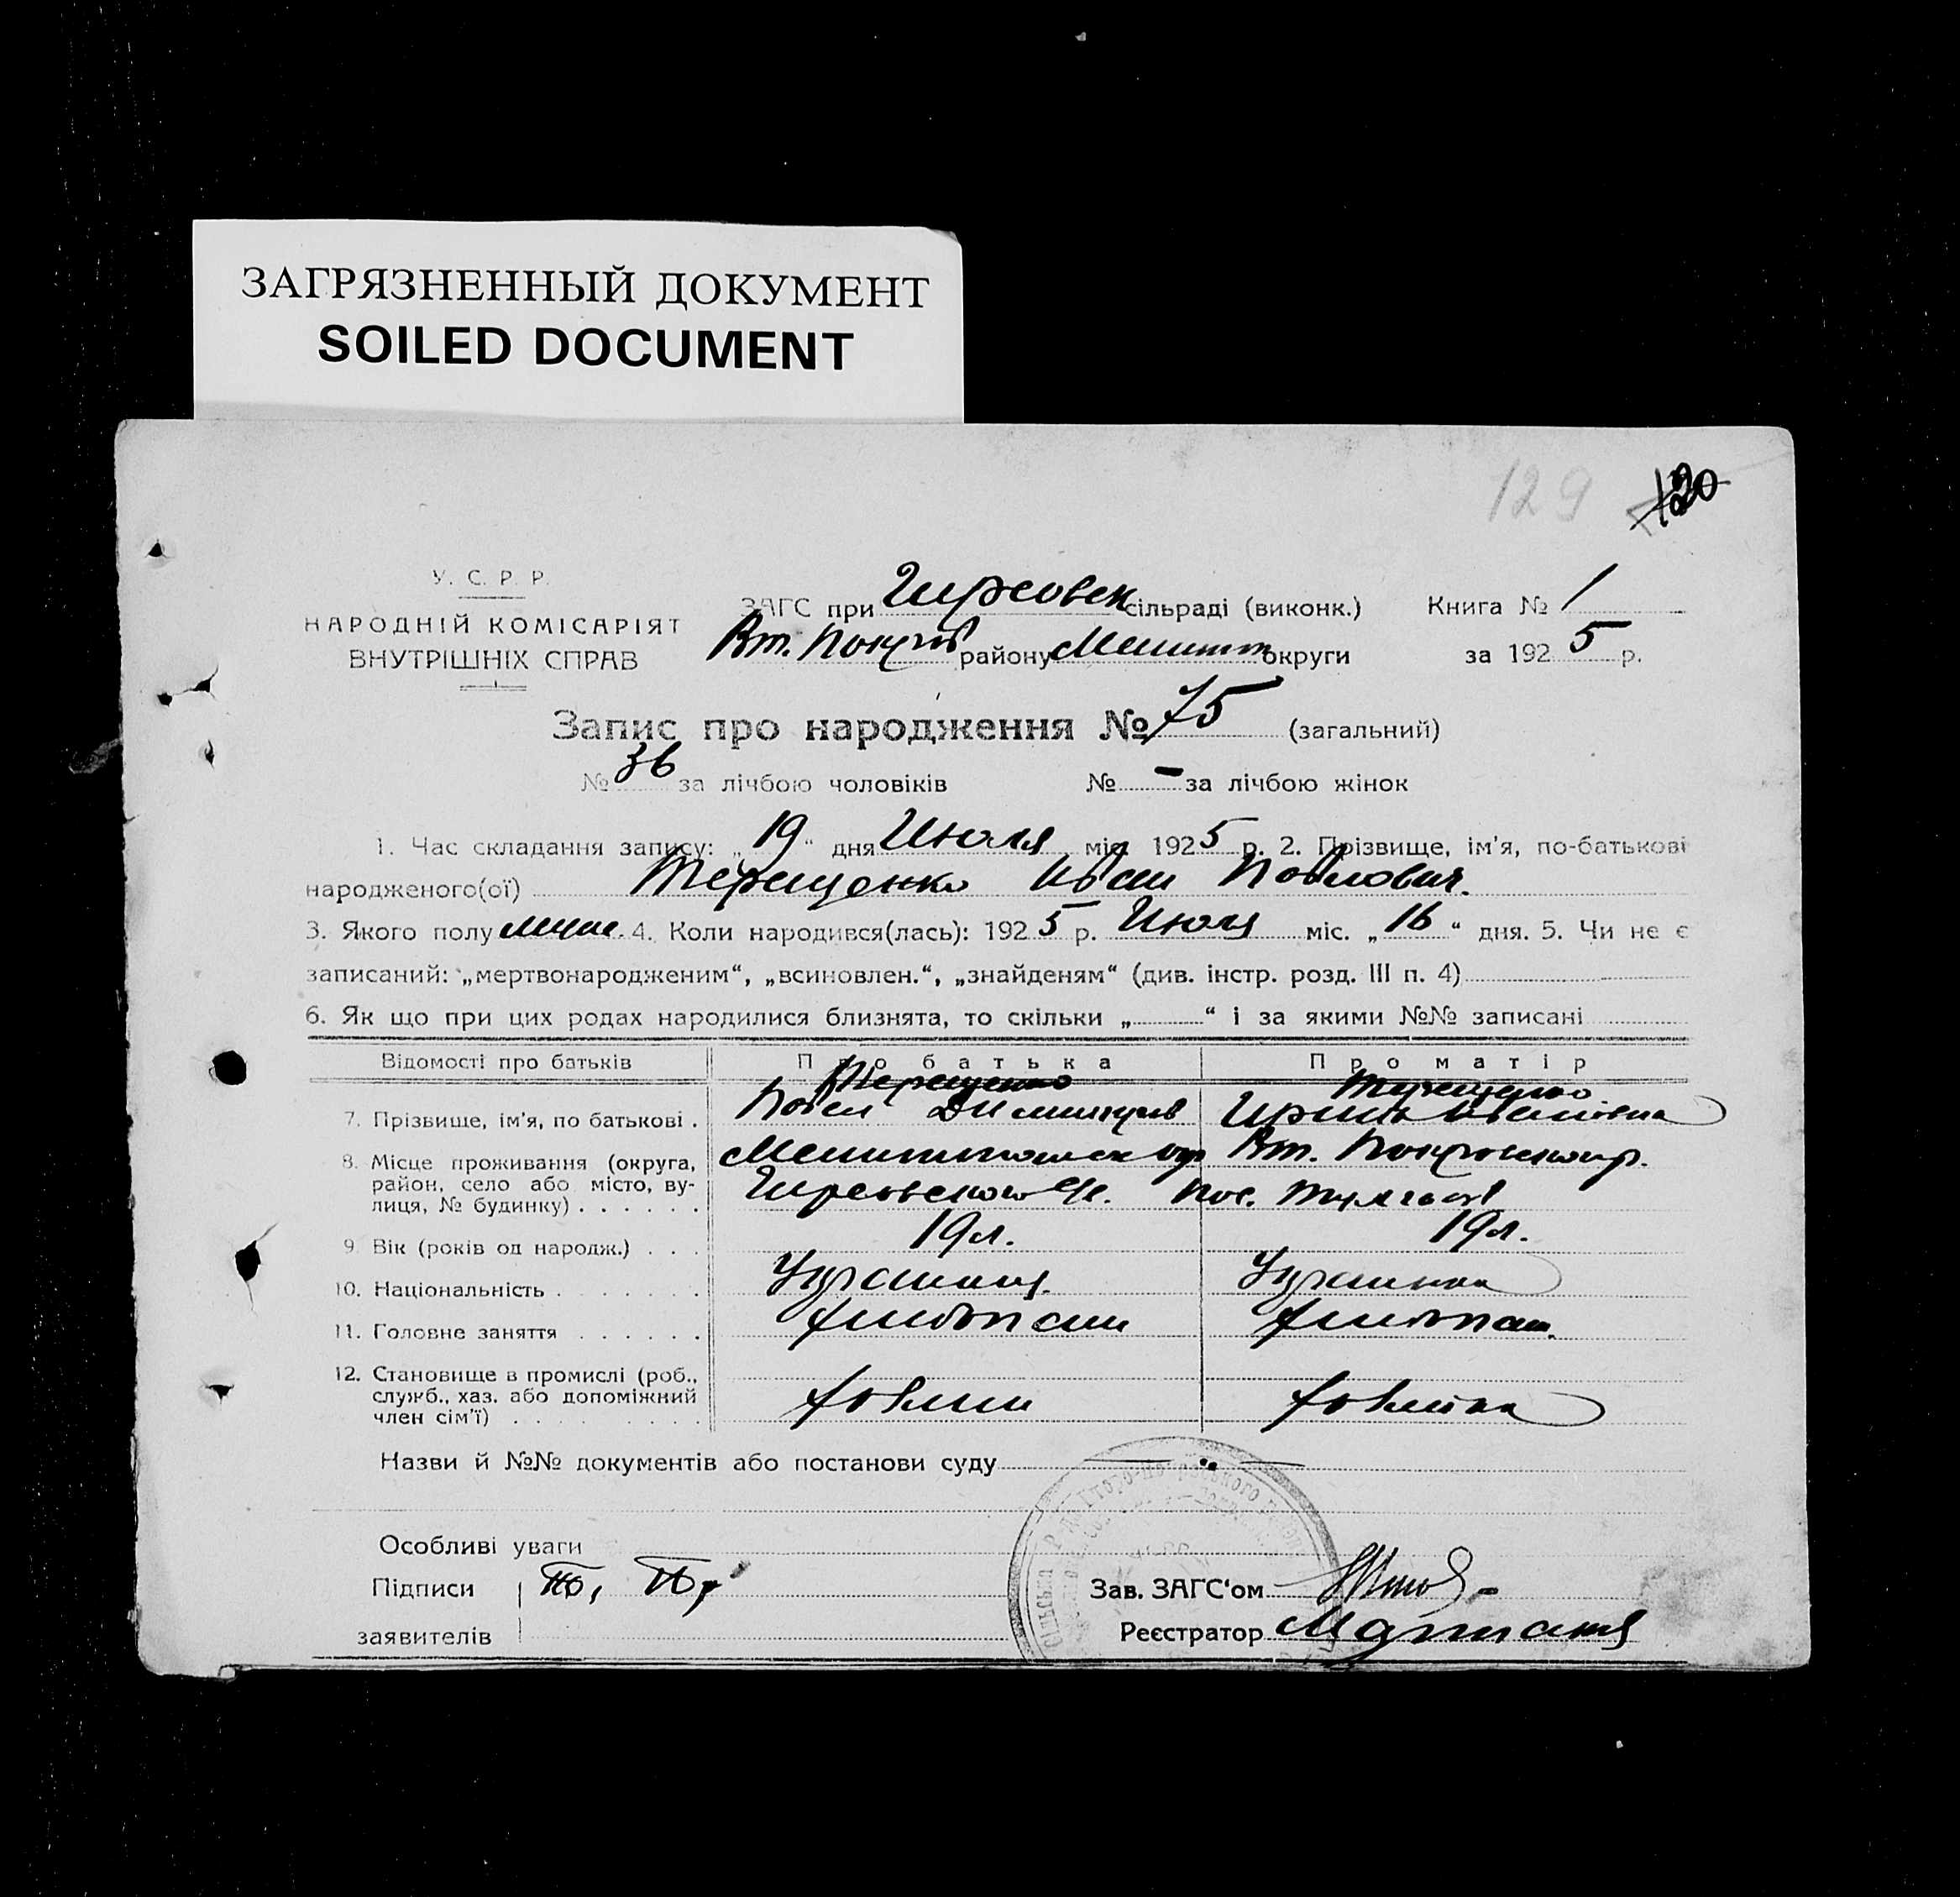 ЗАГРЯЗНЕННЫЙ ДОКУМЕНТ
SOILED DOCUMENT
129
У. С. Р. Р.
НАРОДНІЙ КОМІСАРІЯТ
ВНУТРІШНІХ СПРАВ
ЗАГС при Гирсовск сільраді (виконк.) Книга № 1
Вт. Покров району Мелитоп округи за 1925 р.
Запис про народження № 75 (загальний)
№ 36 за лічбою чоловіків № - за лічбою жінок
1. Час складання запису: „19“ дня Июля міс. 1925 р. 2. Прізвище, ім'я, по-батькові
народженого(ої) Терещенко Иван Павлович.
3. Якого полу муж. 4. Коли народився(лась): 1925 р. Июля міс. „16“ дня. 5. Чи не є
записаний: „мертвонародженим“, „всиновлен.“, „знайденям“ (див. інстр. розд. III п. 4)
6. Як що при цих родах народилися близнята, то скільки „ “ і за якими №№ записані
Відомості про батьків Про батька Про матір
Терещенко Терещенко
7. Прізвище, ім'я, по батькові . Павел Ивановна
8. Місце проживання (округа, район, село або місто, вулиця, № будинку) . . . . . . Вт. Покровского р.
Гирсовского пос.
9. Вік (років од народж.) . . . 19 л. 19 л.
10. Національність . . . . . . . Украинец. Украинка
11. Головне заняття . . . . . . хлебопаш хлебопаш.
12. Становище в промислі (роб., служб., хаз. або допоміжний член сім'ї) . . . . . . хозяин хозяйка
Назви й №№ документів або постанови суду
Особливі уваги
Підписи
заявителів
Зав. ЗАГС'ом
Реєстратор